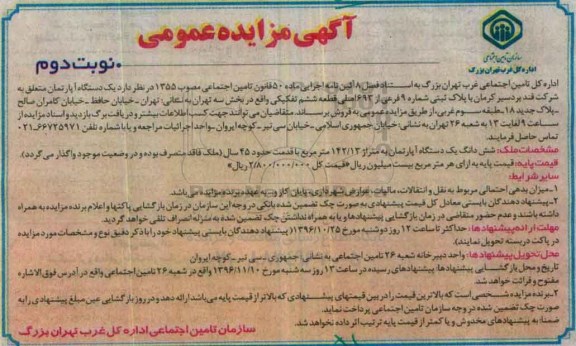 آگهی مزایده عمومی
نوبت دوم
سازمان تأمین اجتماعی
اداره کل غرب تهران بزرگ
اداره کل تامین اجتماعی غرب تهران بزرگ به استناد فصل ۸ آئین نامه اجرایی ماده ۵۰ قانون تامین اجتماعی مصوب ۱۳۵۵ در نظر دارد یک دستگاه آپارتمان متعلق به
شرکت قند بردسیر کرمان با پلاک ثبتی شماره ۹ فرعی از ۶۹۳ اصلی قطعه ششم تفکیکی واقع در بخش سه تهران به نشانی: تهران -خیابان حافظ -خیابان کامران صالح
-پلاک جدید ۱۸ -طبقه سوم غربی، از طریق مزایده عمومی به فروش برساند. متقاضیان می توانند جهت کسب اطلاعات بیشتر و دریافت برگ بازدید و اسناد مزایده از
ساعت ۹ لغایت ۱۳ به شعبه ۲۶ تهران به نشانی: خیابان جمهوری اسلامی -خیابان سی تیر-کوچه ایروان -واحد اجرائیات مراجعه و یا با شماره تلفن ۶۶۷۲۵۹۷۱-۰۲۱
تماس حاصل فرمایند.
مشخصات ملک: شش دانگ یک دستگاه آپارتمان به متراژ ۱۴۲/۱۳ متر مربع با قدمت حدود ۴۵ سال (ملک فاقد متصرف بوده و در وضعیت موجود واگذار می گردد).
قیمت پایه: قیمت پایه به ازای هر متر مربع بیست میلیون ریال «قیمت کل ۲/۸۰۰/۰۰۰/۰۰۰ ریال»
سایر شرایط:
۱-میزان بدهی احتمالی مربوط به نقل و انتقالات، مالیات، عوارض شهرداری، پایان کار و... به عهده برنده مزایده می باشد.
۲-پیشنهاد دهندگان بایستی معادل کل قیمت پیشنهادی به صورت چک تضمین شده بانکی در وجه این سازمان در زمان بازگشایی پاکتها و اعلام برنده مزایده به همراه
داشته باشند و عدم حضور متقاضی در زمان بازگشایی پیشنهادها و یا به همراه نداشتن چک تضمین شده به منزله انصراف تلقی خواهد گردید.
مهلت ارائه پیشنهادها: حداکثر تا ساعت ۱۲ روز دوشنبه مورخ ۱۳۹۶/۱۰/۲۵ (پیشنهاد دهندگان بایستی پیشنهاد خود را با ذکر دقیق نوع و مشخصات مورد مزایده
در پاکت دربسته تحویل نمایند).
محل تحویل پیشنهادها: واحد دبیرخانه شعبه ۲۶ تامین اجتماعی به نشانی: جمهوری -سی تیر -کوچه ایروان
تاریخ و محل بازگشایی پیشنهادها: پیشنهادهای رسیده در ساعت ۱۳ روز سه شنبه مورخ ۱۳۹۶/۱۱/۱۰ واقع در شعبه ۲۶ تامین اجتماعی واقع در آدرس فوق الاشاره
مفتوح و قرائت خواهد شد
۲-برنده مزایده شخصی است که بالاترین قیمت را در بین قیمتهای پیشنهادی که بالاتر از قیمت پایه می باشد ارائه دهد و در روز بازگشایی عین مبلغ پیشنهادی را به
صورت چک تضمین شده در وجه سازمان تامین اجتماعی پرداخت نماید.
ضمنا: به پیشنهادهای مخدوش و یا کمتر از قیمت پایه ترتیب اثر داده نخواهد شد.
سازمان تامین اجتماعی اداره کل غرب تهران بزرگ